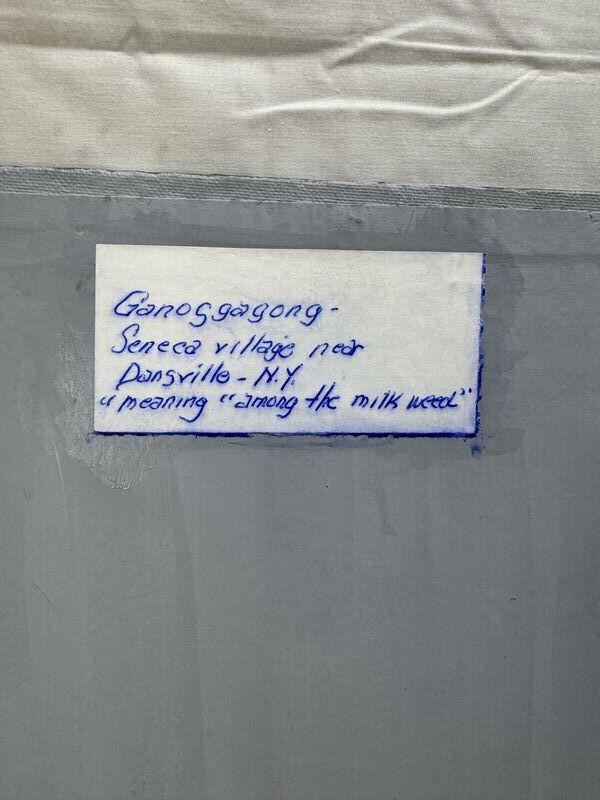 Ganoggagong -
Seneca village near
Dansville - N.Y.
"meaning "among the milk weed"